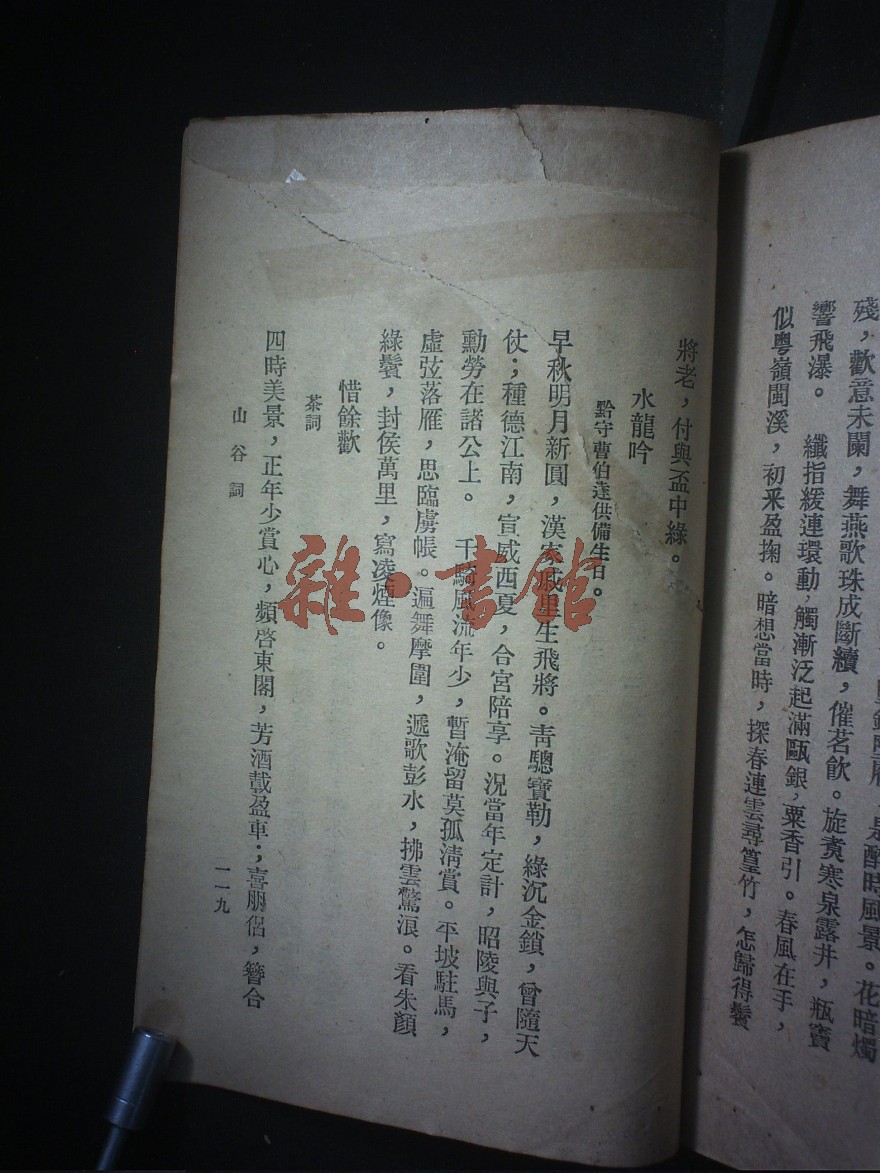 殘，歡意未闌，舞燕歌珠成斷續，催茗飲。旋煑寒泉露井，瓶竇
響飛瀑。　纖指緩連環動，觸漸泛起滿甌銀，粟香引。春風在手，
似粤嶺閩溪，初釆盈掬。暗想當時，探春連雲尋篁竹，怎歸得鬢
將老，付與盃中綠。
水龍吟
黔守曹伯達供備生日。
早秋明月新圓，漢家戚里生飛將。靑驄寶勒，綠沉金鎖，曾隨天
仗；種德江南，宣威西夏，合宮陪享。況當年定計，昭陵與子，
勳勞在諸公上。　千騎風流年少，暫淹留莫孤淸賞。平坡駐馬，
虛弦落雁，思臨虜帳。遍舞摩圍，遞歌彭水，拂雲驚浪。看朱顏
綠鬢，封侯萬里，寫凌煙像。
惜餘歡
茶詞
四時美景，正年少賞心，頻啓東閣，芳酒載盈車；喜朋侶，簪合
山谷詞
一一九
雜·書館